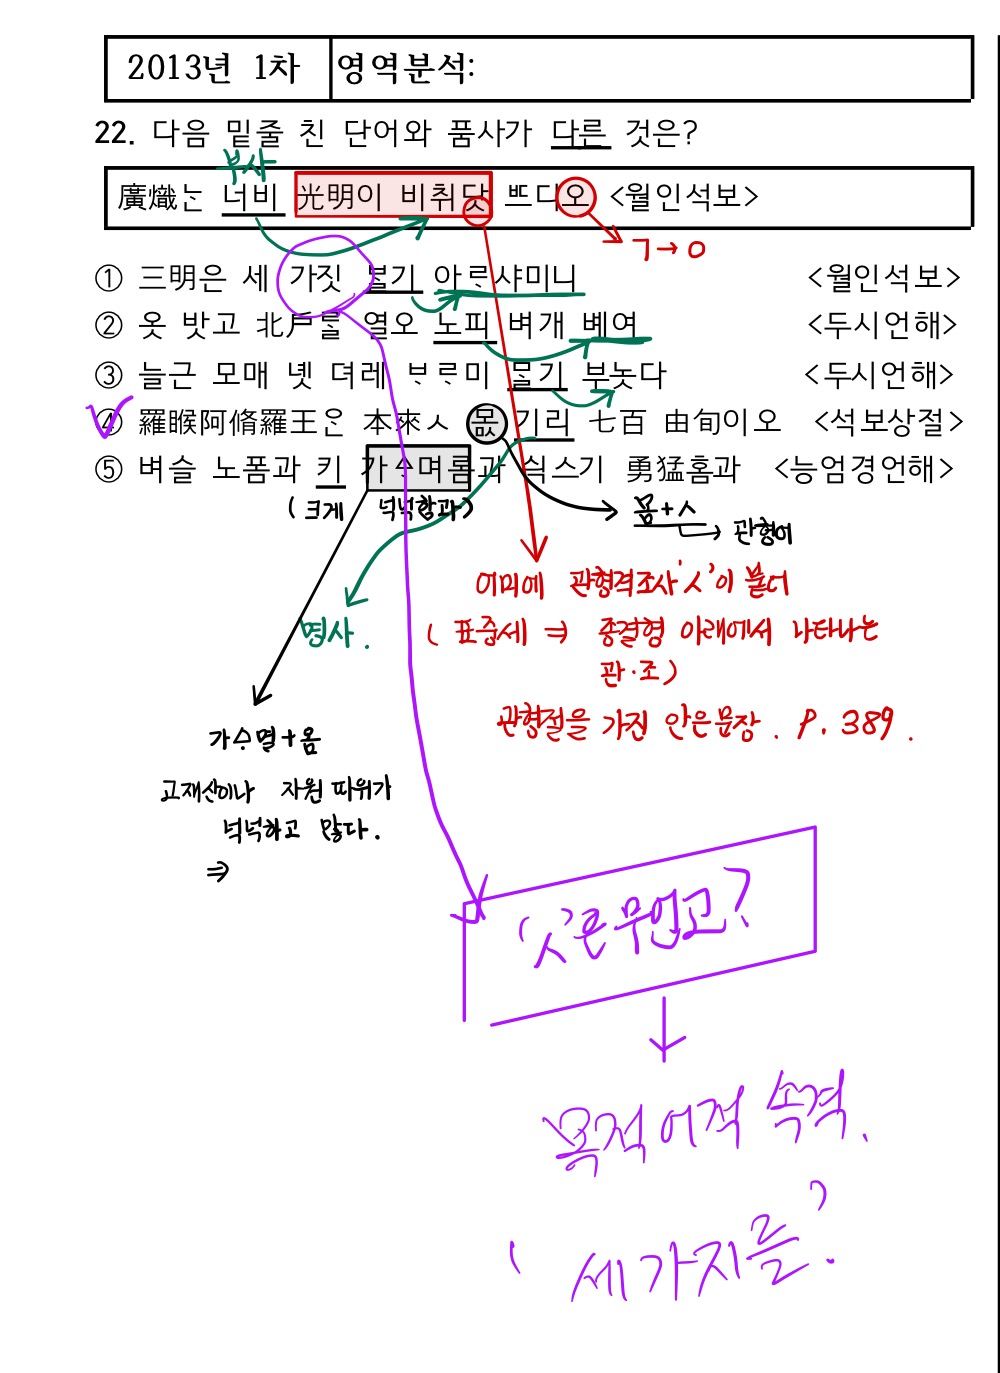 2013년 1차 영역분석:
22. 다음 밑줄 친 단어와 품사가 다른 것은?
부사
廣熾ᄂᆞᆫ 너비 光明이 비취닷 ᄠᅳ디오 <월인석보>
ㄱ→ㅇ
① 三明은 세 가짓 ᄇᆞᆯ기 아ᄅᆞ샤미니 <월인석보>
② 옷 밧고 北戶ᄅᆞᆯ 열오 노피 벼개 볘여 <두시언해>
③ 늘근 모매 녯 뎌레 ᄇᆞᄅᆞ미 ᄆᆞᆯ기 부놋다 <두시언해>
④ 羅睺阿脩羅王ᄋᆞᆫ 本來ㅅ 몺 기리 七百 由旬이오 <석보상절>
⑤ 벼슬 노폼과 키 가ᅀᆞ며롬과 싁스기 勇猛홈과 <능엄경언해>
(크게 넉넉함과)
몸+ㅅ
관형어
어미에 관형격조사'ㅅ'이 붙어
명사.
(표준세 ⇒ 종결형 아래에서 나타나는
관·조)
관형절을 가진 안은문장. P. 389.
가ᅀᆞ멸+옴
고재산이나 자원 따위가
넉넉하고 많다.
⇒
'ㅅ'은 무언고?
↓
목적어적 속격.
'세가지를'.